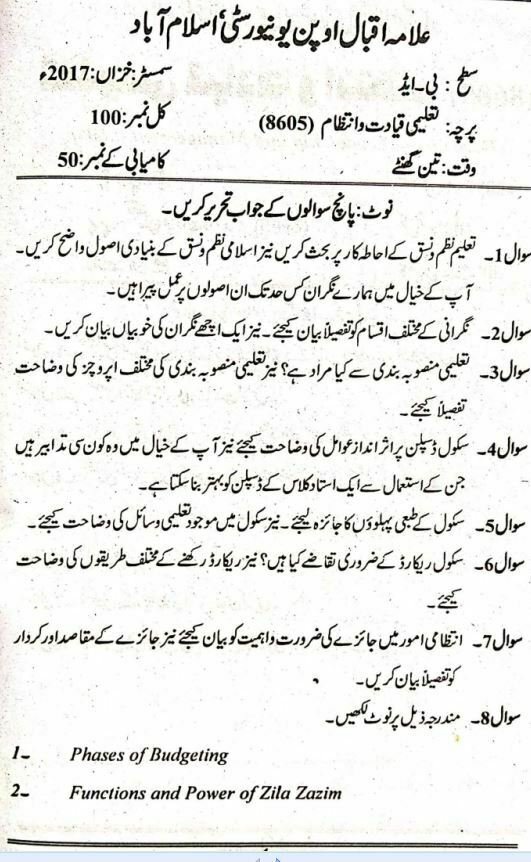 علامہ اقبال اوپن یونیورسٹی، اسلام آباد
سطح: بی۔ایڈ سمسٹر: خزاں: 2017ء
پرچہ: تعلیمی قیادت و انتظام (8605) کل نمبر: 100
وقت: تین گھنٹے کامیابی کے نمبر: 50
نوٹ: پانچ سوالوں کے جواب تحریر کریں۔
سوال 1۔ تعلیم نظم و نسق کے احاطہ کار پر بحث کریں نیز اسلامی نظم و نسق کے بنیادی اصول واضح کریں۔
آپ کے خیال میں ہمارے نگران کس حد تک ان اصولوں پر عمل پیرا ہیں۔
سوال 2۔ نگرانی کے مختلف اقسام کو تفصیلاً بیان کیجئے۔ نیز ایک اچھے نگران کی خوبیاں بیان کریں۔
سوال 3۔ تعلیمی منصوبہ بندی سے کیا مراد ہے؟ نیز تعلیمی منصوبہ بندی کی مختلف اپروچز کی وضاحت
تفصیلاً کیجئے۔
سوال 4۔ سکول ڈسپلن پر اثر انداز عوامل کی وضاحت کیجئے نیز آپ کے خیال میں وہ کون سی تدابیر ہیں
جن کے استعمال سے ایک استاد کلاس کے ڈسپلن کو بہتر بنا سکتا ہے۔
سوال 5۔ سکول کے طبعی پہلوؤں کا جائزہ لیجئے۔ نیز سکول میں موجود تعلیمی وسائل کی وضاحت کیجئے۔
سوال 6۔ سکول ریکارڈ کے ضروری تقاضے کیا ہیں؟ نیز ریکارڈ رکھنے کے مختلف طریقوں کی وضاحت
کیجئے۔
سوال 7۔ انتظامی امور میں جائزے کی ضرورت و اہمیت کو بیان کیجئے نیز جائزے کے مقاصد اور کردار
کو تفصیلاً بیان کریں۔
سوال 8۔ مندرجہ ذیل پر نوٹ لکھیں۔
1- Phases of Budgeting
2- Functions and Power of Zila Zazim